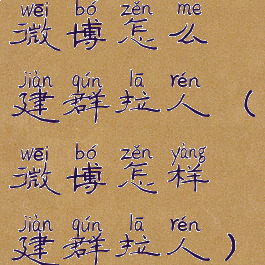 wēi bó zěn me
微博怎么
jiàn qún lā rén
建群拉人（
wēi bó zěn yàng
微博怎样
jiàn qún lā rén
建群拉人）